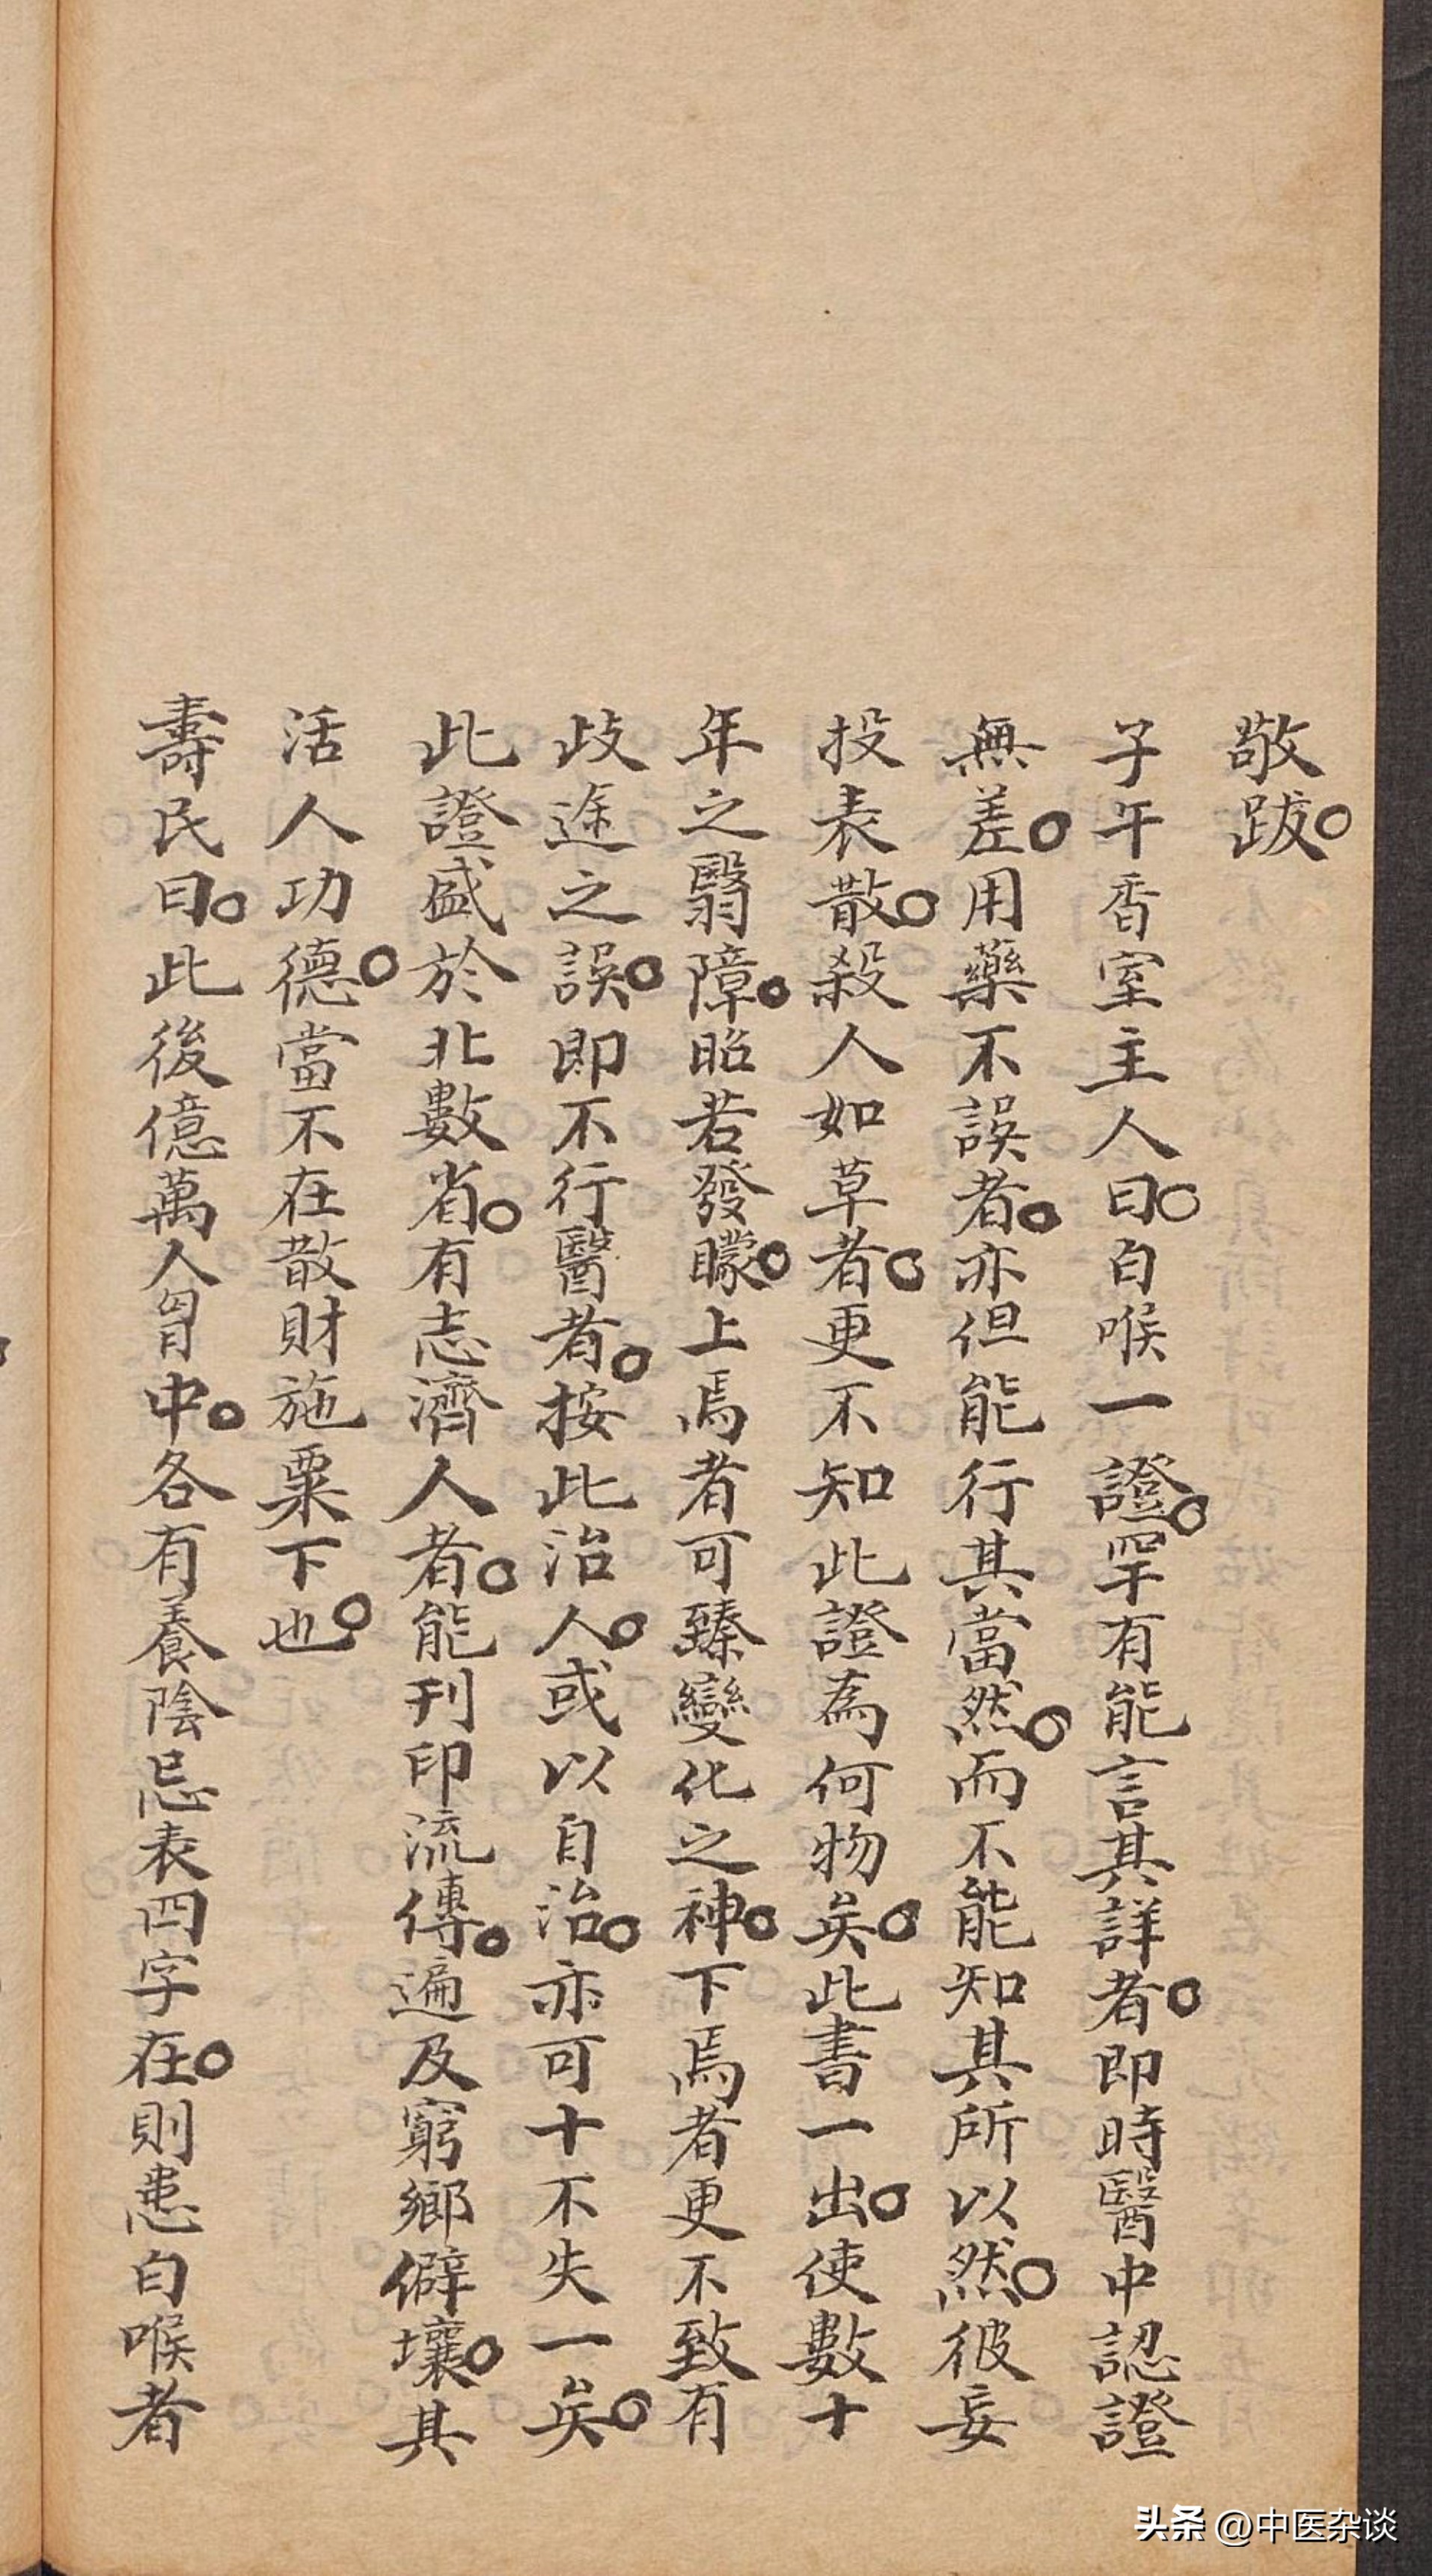 敬跋。
子午香室主人曰。白喉一證。罕有能言其詳者。即時醫中認證
無差。用藥不誤者。亦但能行其當然。而不能知其所以然。彼妄
投表散。殺人如草者。更不知此證為何物矣。此書一出。使數十
年之翳障。昭若發矇。上焉者可臻變化之神。下焉者更不致有
歧途之誤。即不行醫者。按此治人。或以自治。亦可十不失一矣。
此證盛於北數省。有志濟人者。能刊印流傳。遍及窮鄉僻壤。其
活人功德。當不在散財施粟下也。
壽民曰。此後億萬人胷中。各有養陰忌表四字在。則患白喉者
头条 @中医杂谈